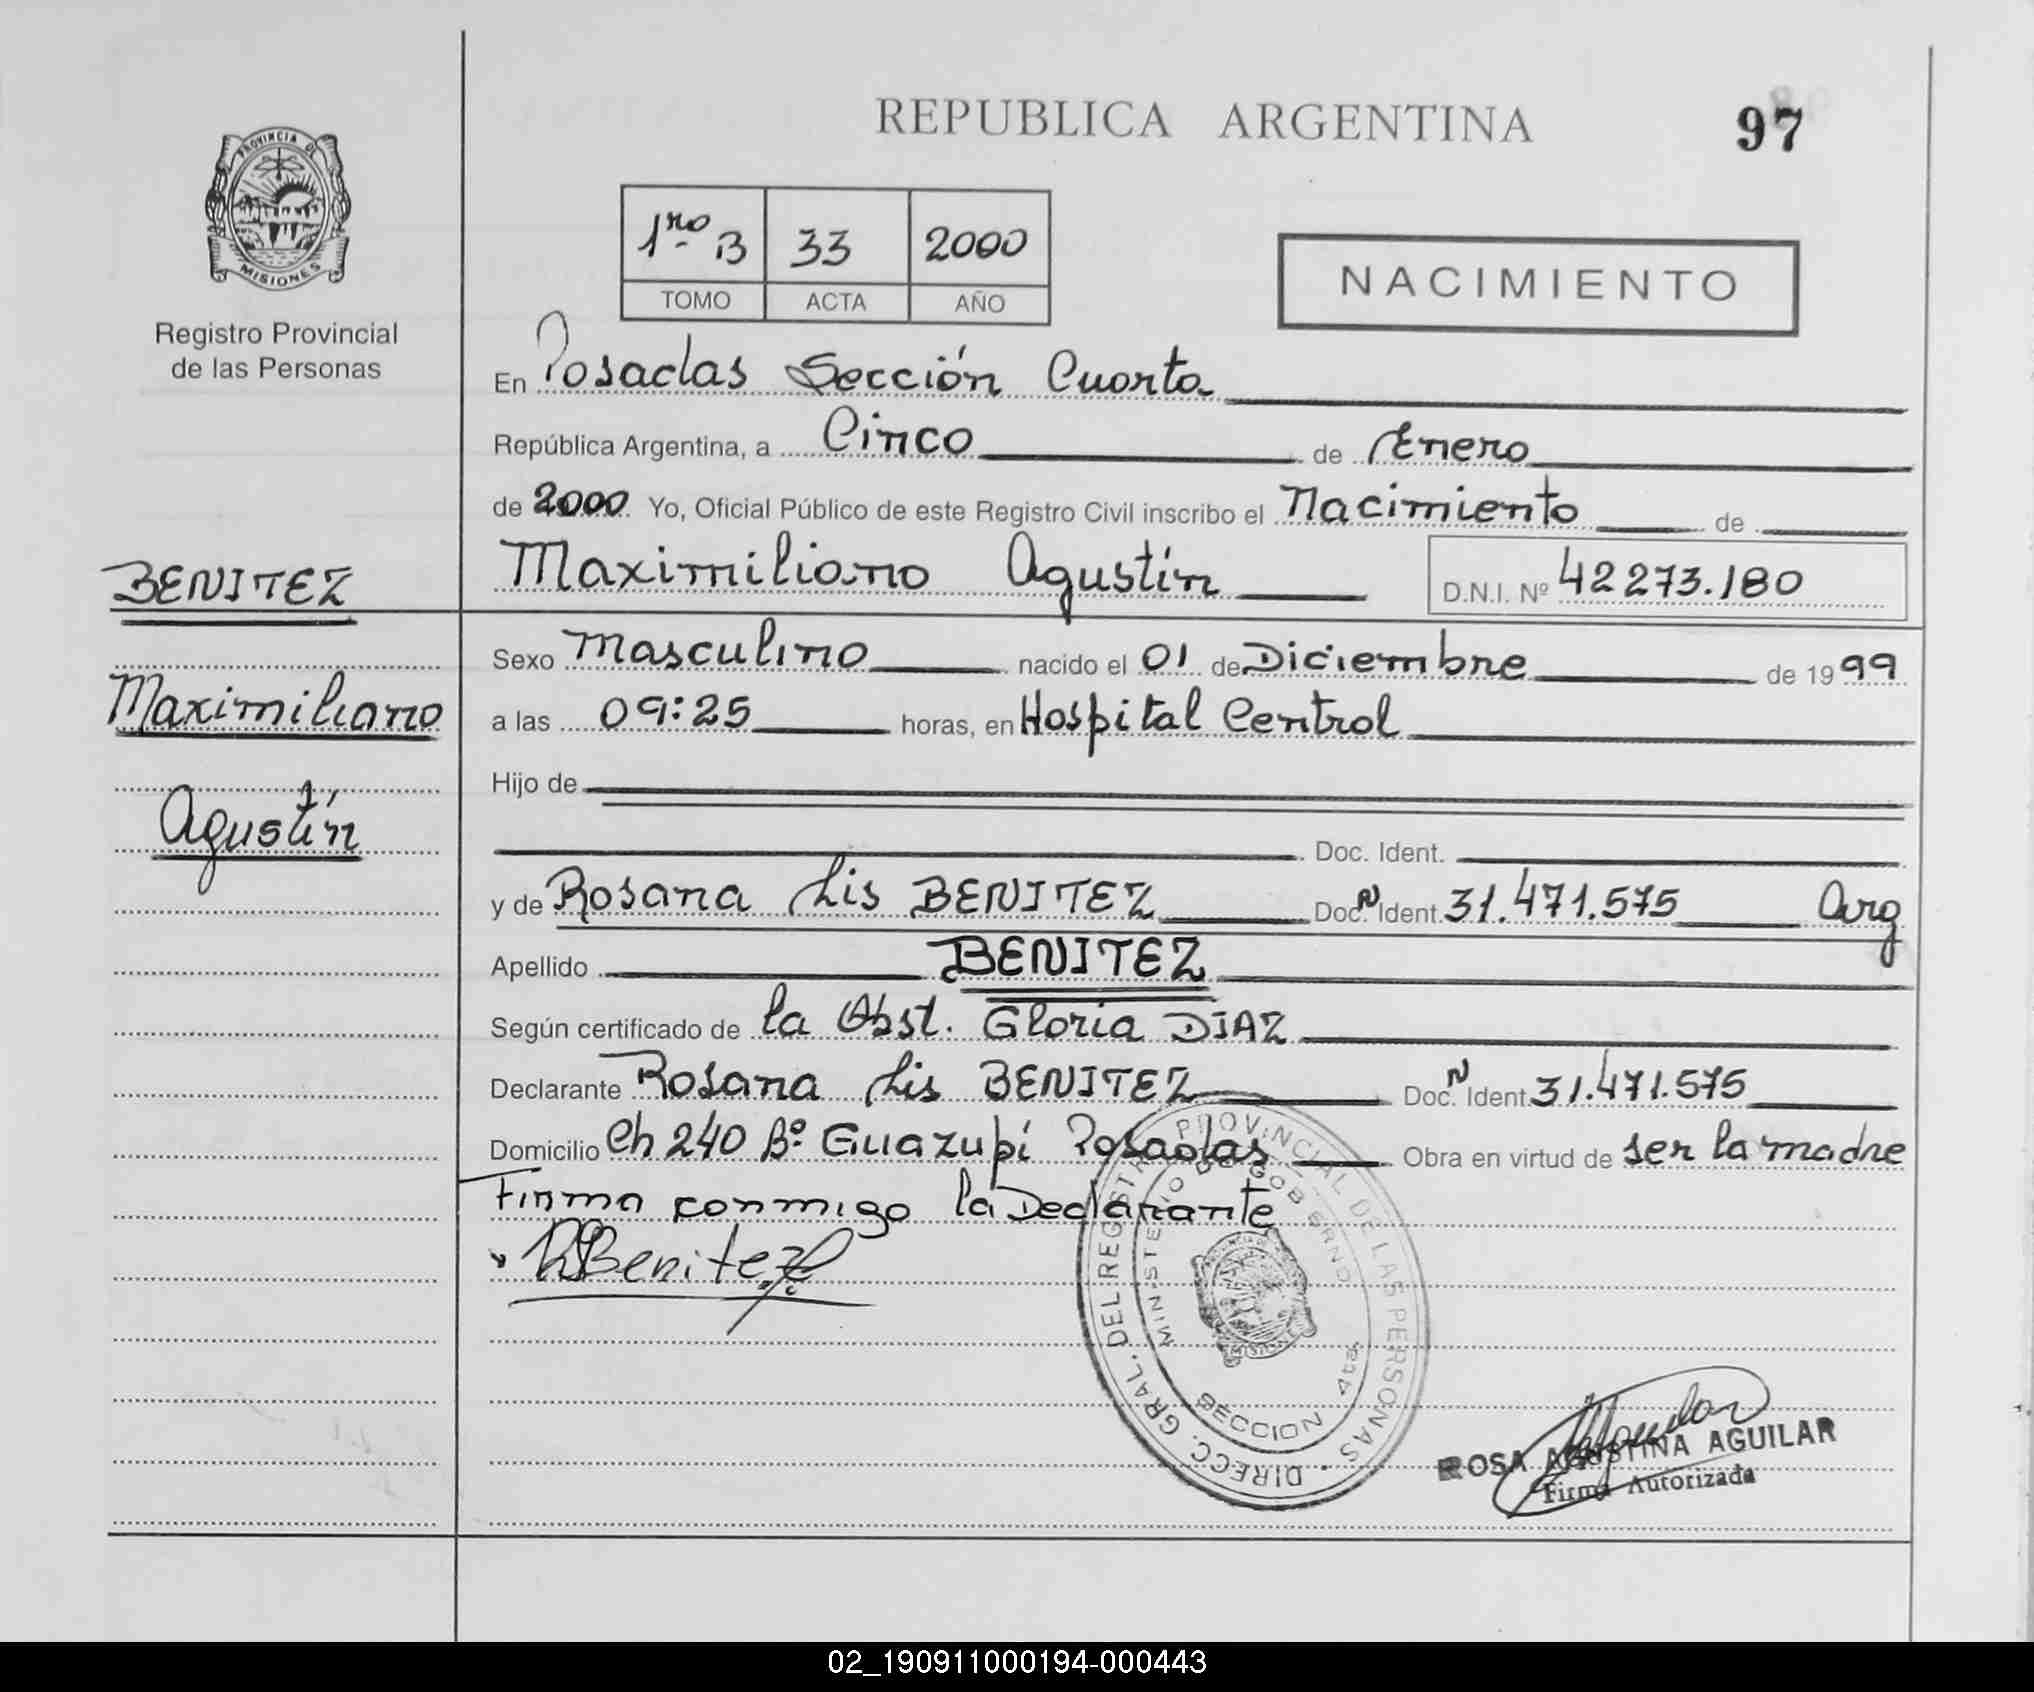 REPUBLICA ARGENTINA
97
PROVINCIA DE
MISIONES
Registro Provincial
de las Personas
1ro B 33 2000
TOMO ACTA AÑO
NACIMIENTO
En Posadas Sección Cuarta
República Argentina, a Cinco de Enero
de 2000 Yo, Oficial Público de este Registro Civil inscribo el Nacimiento de
Maximiliano Agustín D.N.I. Nº 42273.180
BENITEZ
Maximiliano
Agustín
Sexo Masculino nacido el 01 de Diciembre de 1999
a las 09:25 horas, en Hospital Central
Hijo de
Doc. Ident.
y de Rosana Lis BENITEZ Doc. N Ident. 31.471.575 Arg
Apellido BENITEZ
Según certificado de la Obst. Gloria DIAZ
Declarante Rosana Lis BENITEZ Doc. N Ident 31.471.575
Domicilio Ch 240 Bº Guazupi Posadas Obra en virtud de ser la madre
Firma conmigo la Declarante
Benitez
DIRECC. GRAL. DEL REGISTRO PROVINCIAL DE LAS PERSONAS
MINISTERIO DE GOBIERNO
SECCION 4ta.
ROSA AGUSTINA AGUILAR
Firma Autorizada
02_190911000194-000443